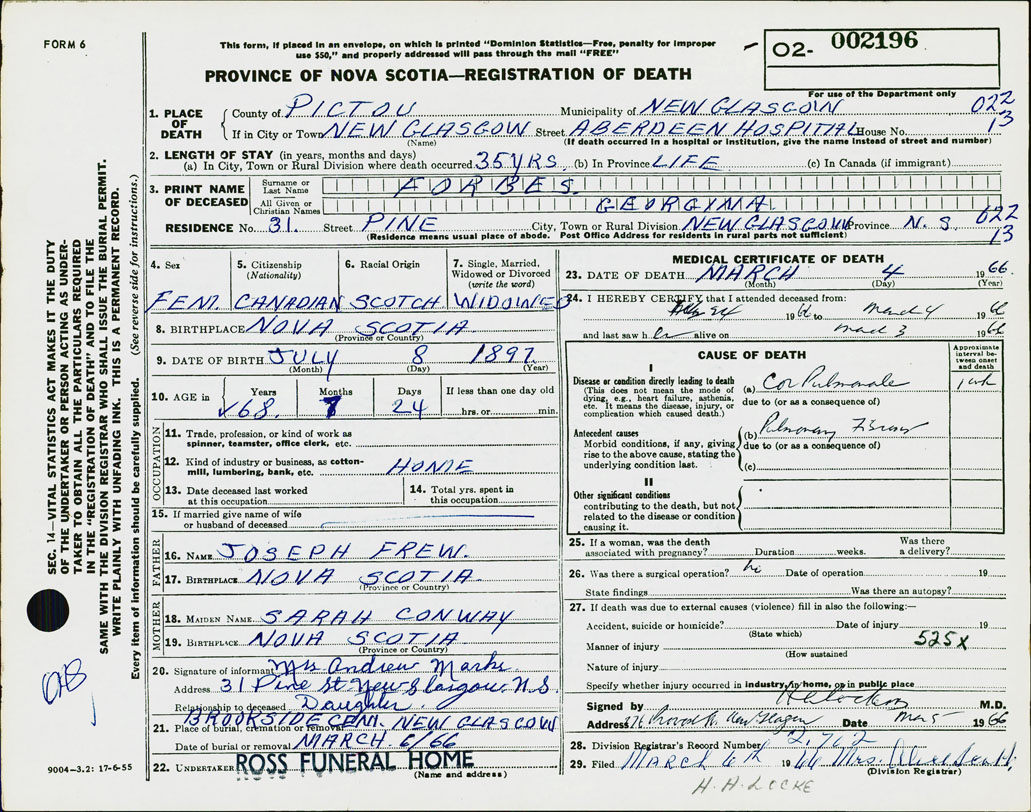 FORM 6
This form, if placed in an envelope, on which is printed "Dominion Statistics—Free, penalty for improper
use $50," and properly addressed will pass through the mail "FREE"
PROVINCE OF NOVA SCOTIA—REGISTRATION OF DEATH
O2- 002196
For use of the Department only
022
13
1. PLACE OF DEATH
County of PICTOU Municipality of NEW GLASGOW
If in City or Town NEW GLASGOW Street ABERDEEN HOSPITAL House No.
(Name) (If death occurred in a hospital or institution, give the name instead of street and number)
2. LENGTH OF STAY (in years, months and days)
(a) In City, Town or Rural Division where death occurred 35 YRS. (b) In Province LIFE (c) In Canada (if immigrant)
3. PRINT NAME OF DECEASED
Surname or Last Name FORBES.
All Given or Christian Names GEORGINA.
RESIDENCE No. 31. Street PINE City, Town or Rural Division NEW GLASGOW Province N.S. 022
13
(Residence means usual place of abode. Post Office Address for residents in rural parts not sufficient)
4. Sex
FEM.
5. Citizenship
(Nationality)
CANADIAN
6. Racial Origin
SCOTCH
7. Single, Married,
Widowed or Divorced
(write the word)
WIDOWED
8. BIRTHPLACE NOVA SCOTIA
(Province or Country)
9. DATE OF BIRTH JULY 8 1897
(Month) (Day) (Year)
10. AGE in
Years Months Days If less than one day old
68. 7 24 hrs. or min.
OCCUPATION
11. Trade, profession, or kind of work as
spinner, teamster, office clerk, etc.
12. Kind of industry or business, as cotton-
mill, lumbering, bank, etc. HOME
13. Date deceased last worked
at this occupation
14. Total yrs. spent in
this occupation
15. If married give name of wife
or husband of deceased
FATHER
16. NAME JOSEPH FREW.
17. BIRTHPLACE NOVA SCOTIA
(Province or Country)
MOTHER
18. MAIDEN NAME SARAH CONWAY
19. BIRTHPLACE NOVA SCOTIA
(Province or Country)
20. Signature of informant Mrs Andrew
Address 31 Pine St New Glasgow, N.S.
Relationship to deceased Daughter.
21. Place of burial, cremation or removal BROOKSIDE CEM. NEW GLASGOW
Date of burial or removal MARCH 6/66
22. UNDERTAKER ROSS FUNERAL HOME
(Name and address)
MEDICAL CERTIFICATE OF DEATH
23. DATE OF DEATH MARCH 4 1966.
(Month) (Day) (Year)
24. I HEREBY CERTIFY that I attended deceased from:
19 66 to March 4 19 66
and last saw her alive on March 3 1966
CAUSE OF DEATH
Approximate
interval be-
tween onset
and death
I
Disease or condition directly leading to death
(This does not mean the mode of
dying, e.g., heart failure, asthenia,
etc. It means the disease, injury, or
complication which caused death.)
(a) Cor Pulmonale 1 wk
due to (or as a consequence of)
Antecedent causes
Morbid conditions, if any, giving
rise to the above cause, stating the
underlying condition last.
(b) Pulmonary Fibrosis
due to (or as a consequence of)
(c)
II
Other significant conditions
contributing to the death, but not
related to the disease or condition
causing it.
25. If a woman, was the death
associated with pregnancy? Duration weeks. Was there
a delivery?
26. Was there a surgical operation? no Date of operation 19
State findings Was there an autopsy?
27. If death was due to external causes (violence) fill in also the following:—
Accident, suicide or homicide? Date of injury 19
(State which)
525X
Manner of injury
(How sustained
Nature of injury
Specify whether injury occurred in industry, in home, or in public place
Signed by M.D.
Address 376 Provost St. New Glasgow Date Mar 5 1966
28. Division Registrar's Record Number 2,762
29. Filed March 4th 1966 Mrs.
(Division Registrar)
H. H. LOCKE
SEC. 14—VITAL STATISTICS ACT MAKES IT THE DUTY
OF THE UNDERTAKER OR PERSON ACTING AS UNDER-
TAKER TO OBTAIN ALL THE PARTICULARS REQUIRED
IN THE "REGISTRATION OF DEATH" AND TO FILE THE
SAME WITH THE DIVISION REGISTRAR WHO SHALL ISSUE THE BURIAL PERMIT.
WRITE PLAINLY WITH UNFADING INK. THIS IS A PERMANENT RECORD.
Every item of information should be carefully supplied. (See reverse side for instructions.)
9004—3.2: 17-6-55